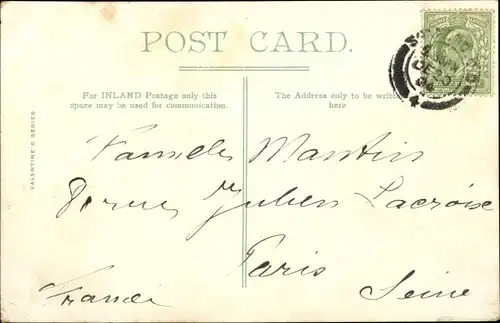 POST CARD.
For INLAND Postage only this
space may be used for communication.
The Address only to be written
here
VALENTINE'S SERIES
Familles Martin
rue Julien Lacroise
Paris
France Seine